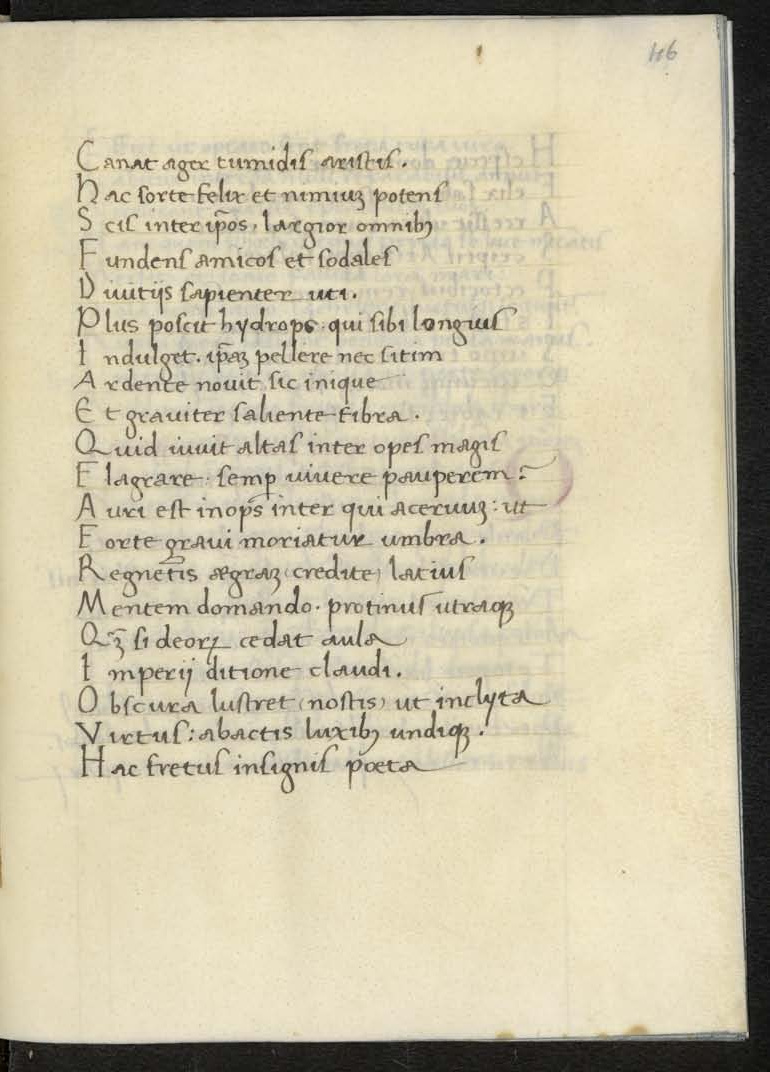 46
Canat ager tumidis aristis.
Hac sorte felix et nimiuꝫ potens
Scis inter ip̄os, largior omnibꝫ
Fundens amicos et sodales
Diuitijs sapienter uti.
Plus poscit hydrops qui sibi longius
Indulget. ip̄aꝫ pellere nec sitim
Ardente nouit sic inique
Et grauiter saliente fibra.
Quid iuuit altas inter opes magis
Flagrare semꝑ uiuere pauperem?
Auri est inops inter qui aceruuꝫ: ut
Forte graui moriatur umbra.
Regnetis ægraꝫ (credite) latius
Mentem domando. protinus utraqꝫ
Qꝫ̄ si deoꝝ cedat aula
Imperij ditione claudi.
Obscura lustret (nostis) ut inclyta
Virtus: abactis luxibꝫ undiqꝫ.
Hac fretus insignis poeta